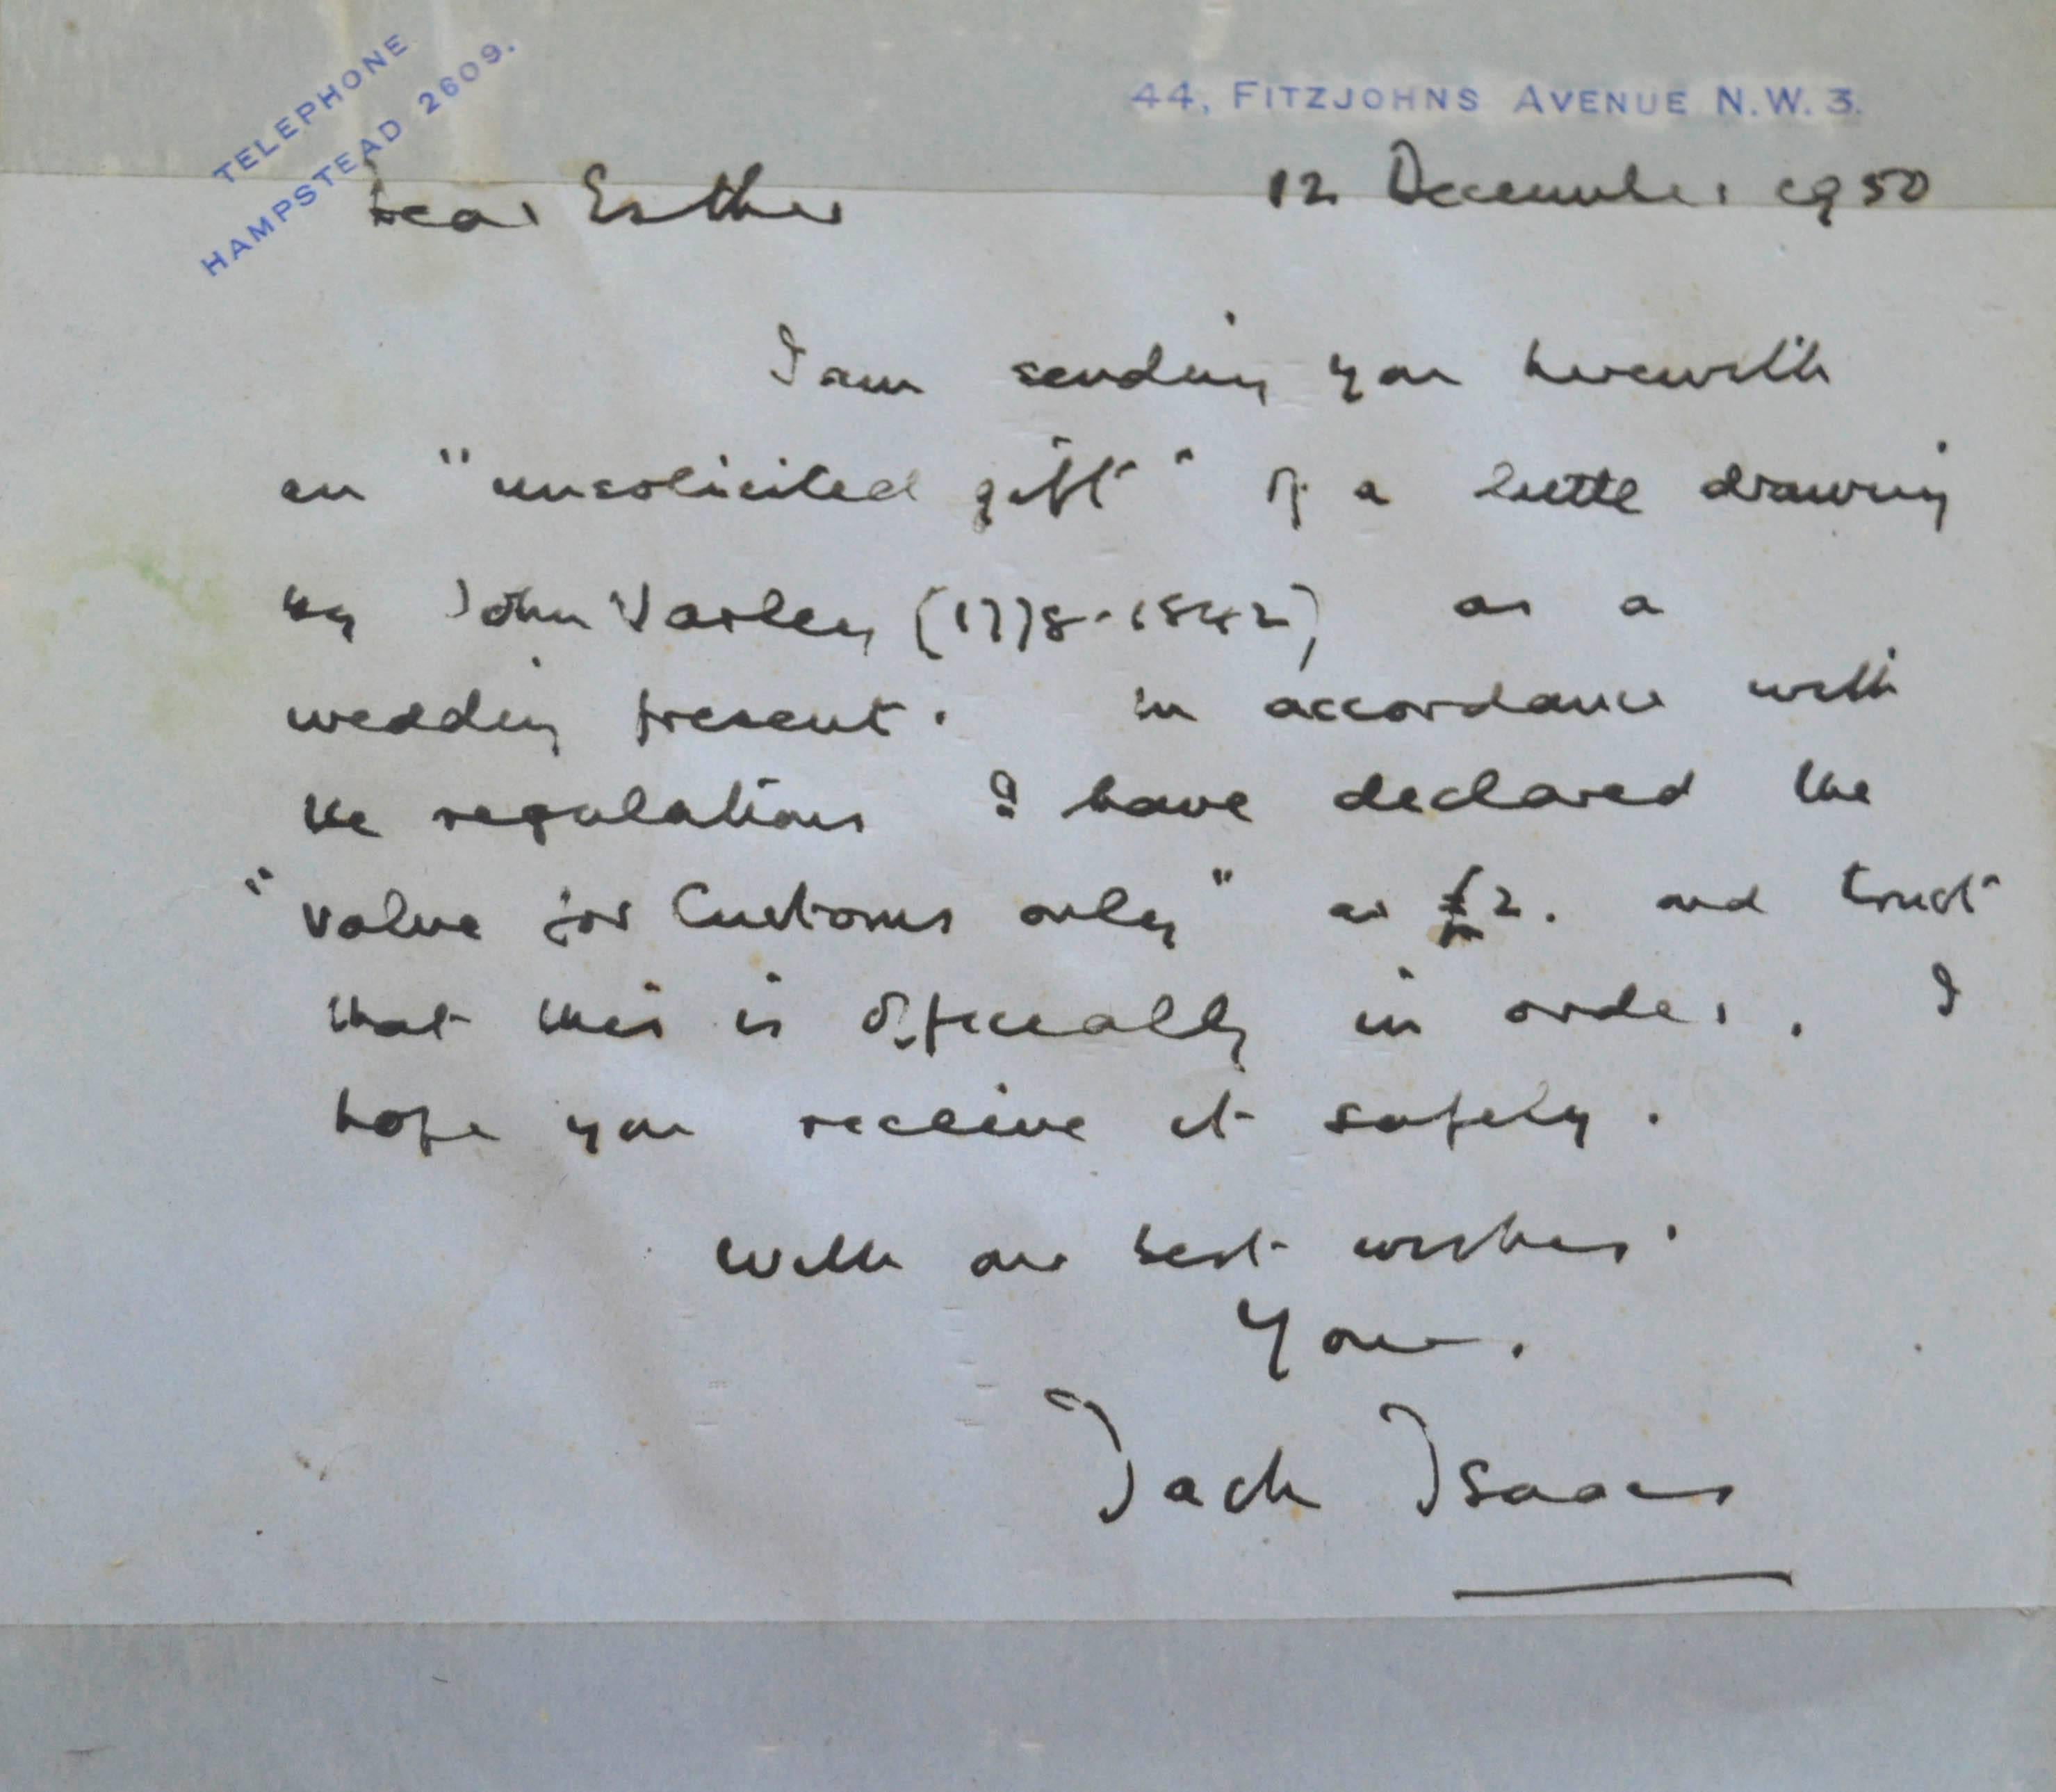 TELEPHONE
HAMPSTEAD 2609.
44, FITZJOHNS AVENUE N.W.3.
12 December 1950
Dear Esther
I am sending you herewith
an "unsolicited gift" of a little drawing
by John Varley (1778-1842), as a
wedding present. In accordance with
the regulations I have declared the
"value for Customs only" as £2. and trust
that this is officially in order. I
hope you receive it safely.
With our best wishes
Yours.
Jack Isaacs